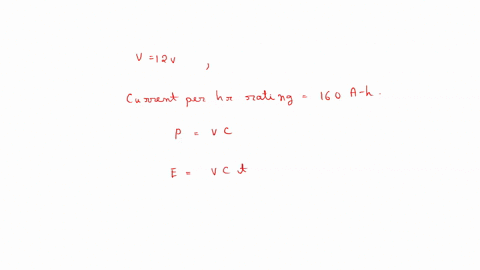 V = 12 v ,
Current per hr rating = 160 A-h.
P = VC
E = VC t